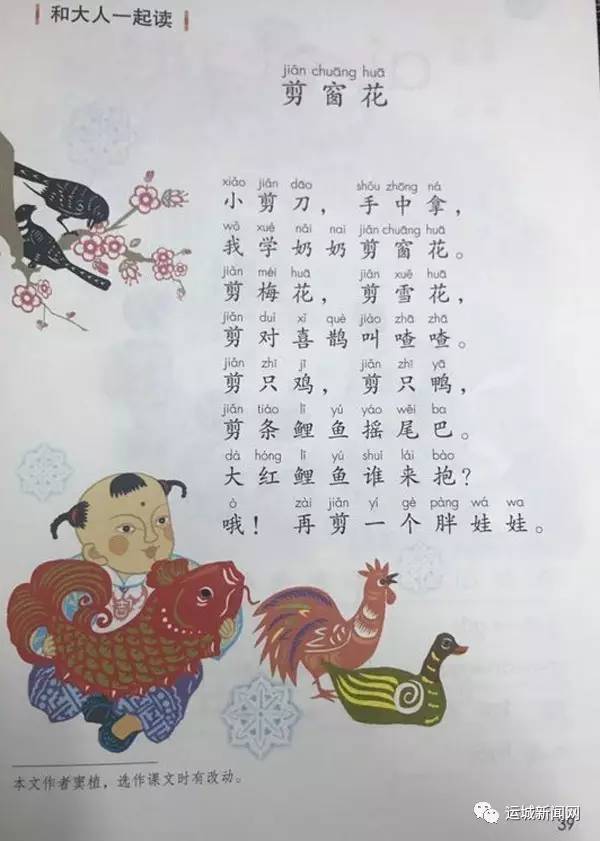 和大人一起读
jiǎn chuāng huā
剪窗花
xiǎo jiǎn dāo shǒu zhōng ná
小剪刀，手中拿，
wǒ xué nǎi nai jiǎn chuāng huā
我学奶奶剪窗花。
jiǎn méi huā jiǎn xuě huā
剪梅花，剪雪花，
jiǎn duì xǐ què jiào zhā zhā
剪对喜鹊叫喳喳。
jiǎn zhī jī jiǎn zhī yā
剪只鸡，剪只鸭，
jiǎn tiáo lǐ yú yáo wěi ba
剪条鲤鱼摇尾巴。
dà hóng lǐ yú shuí lái bào
大红鲤鱼谁来抱？
ò zài jiǎn yí gè pàng wá wa
哦！再剪一个胖娃娃。
本文作者窦植，选作课文时有改动。
运城新闻网
39